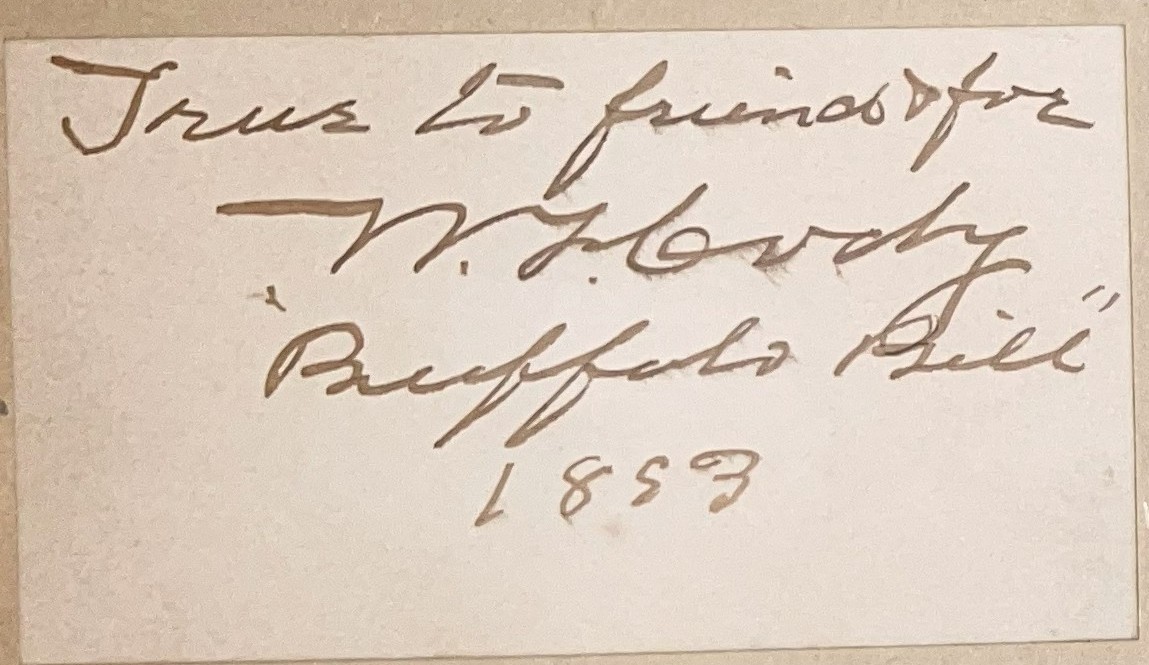 True to friend & foe
W. F. Cody
"Buffalo Bill"
1883